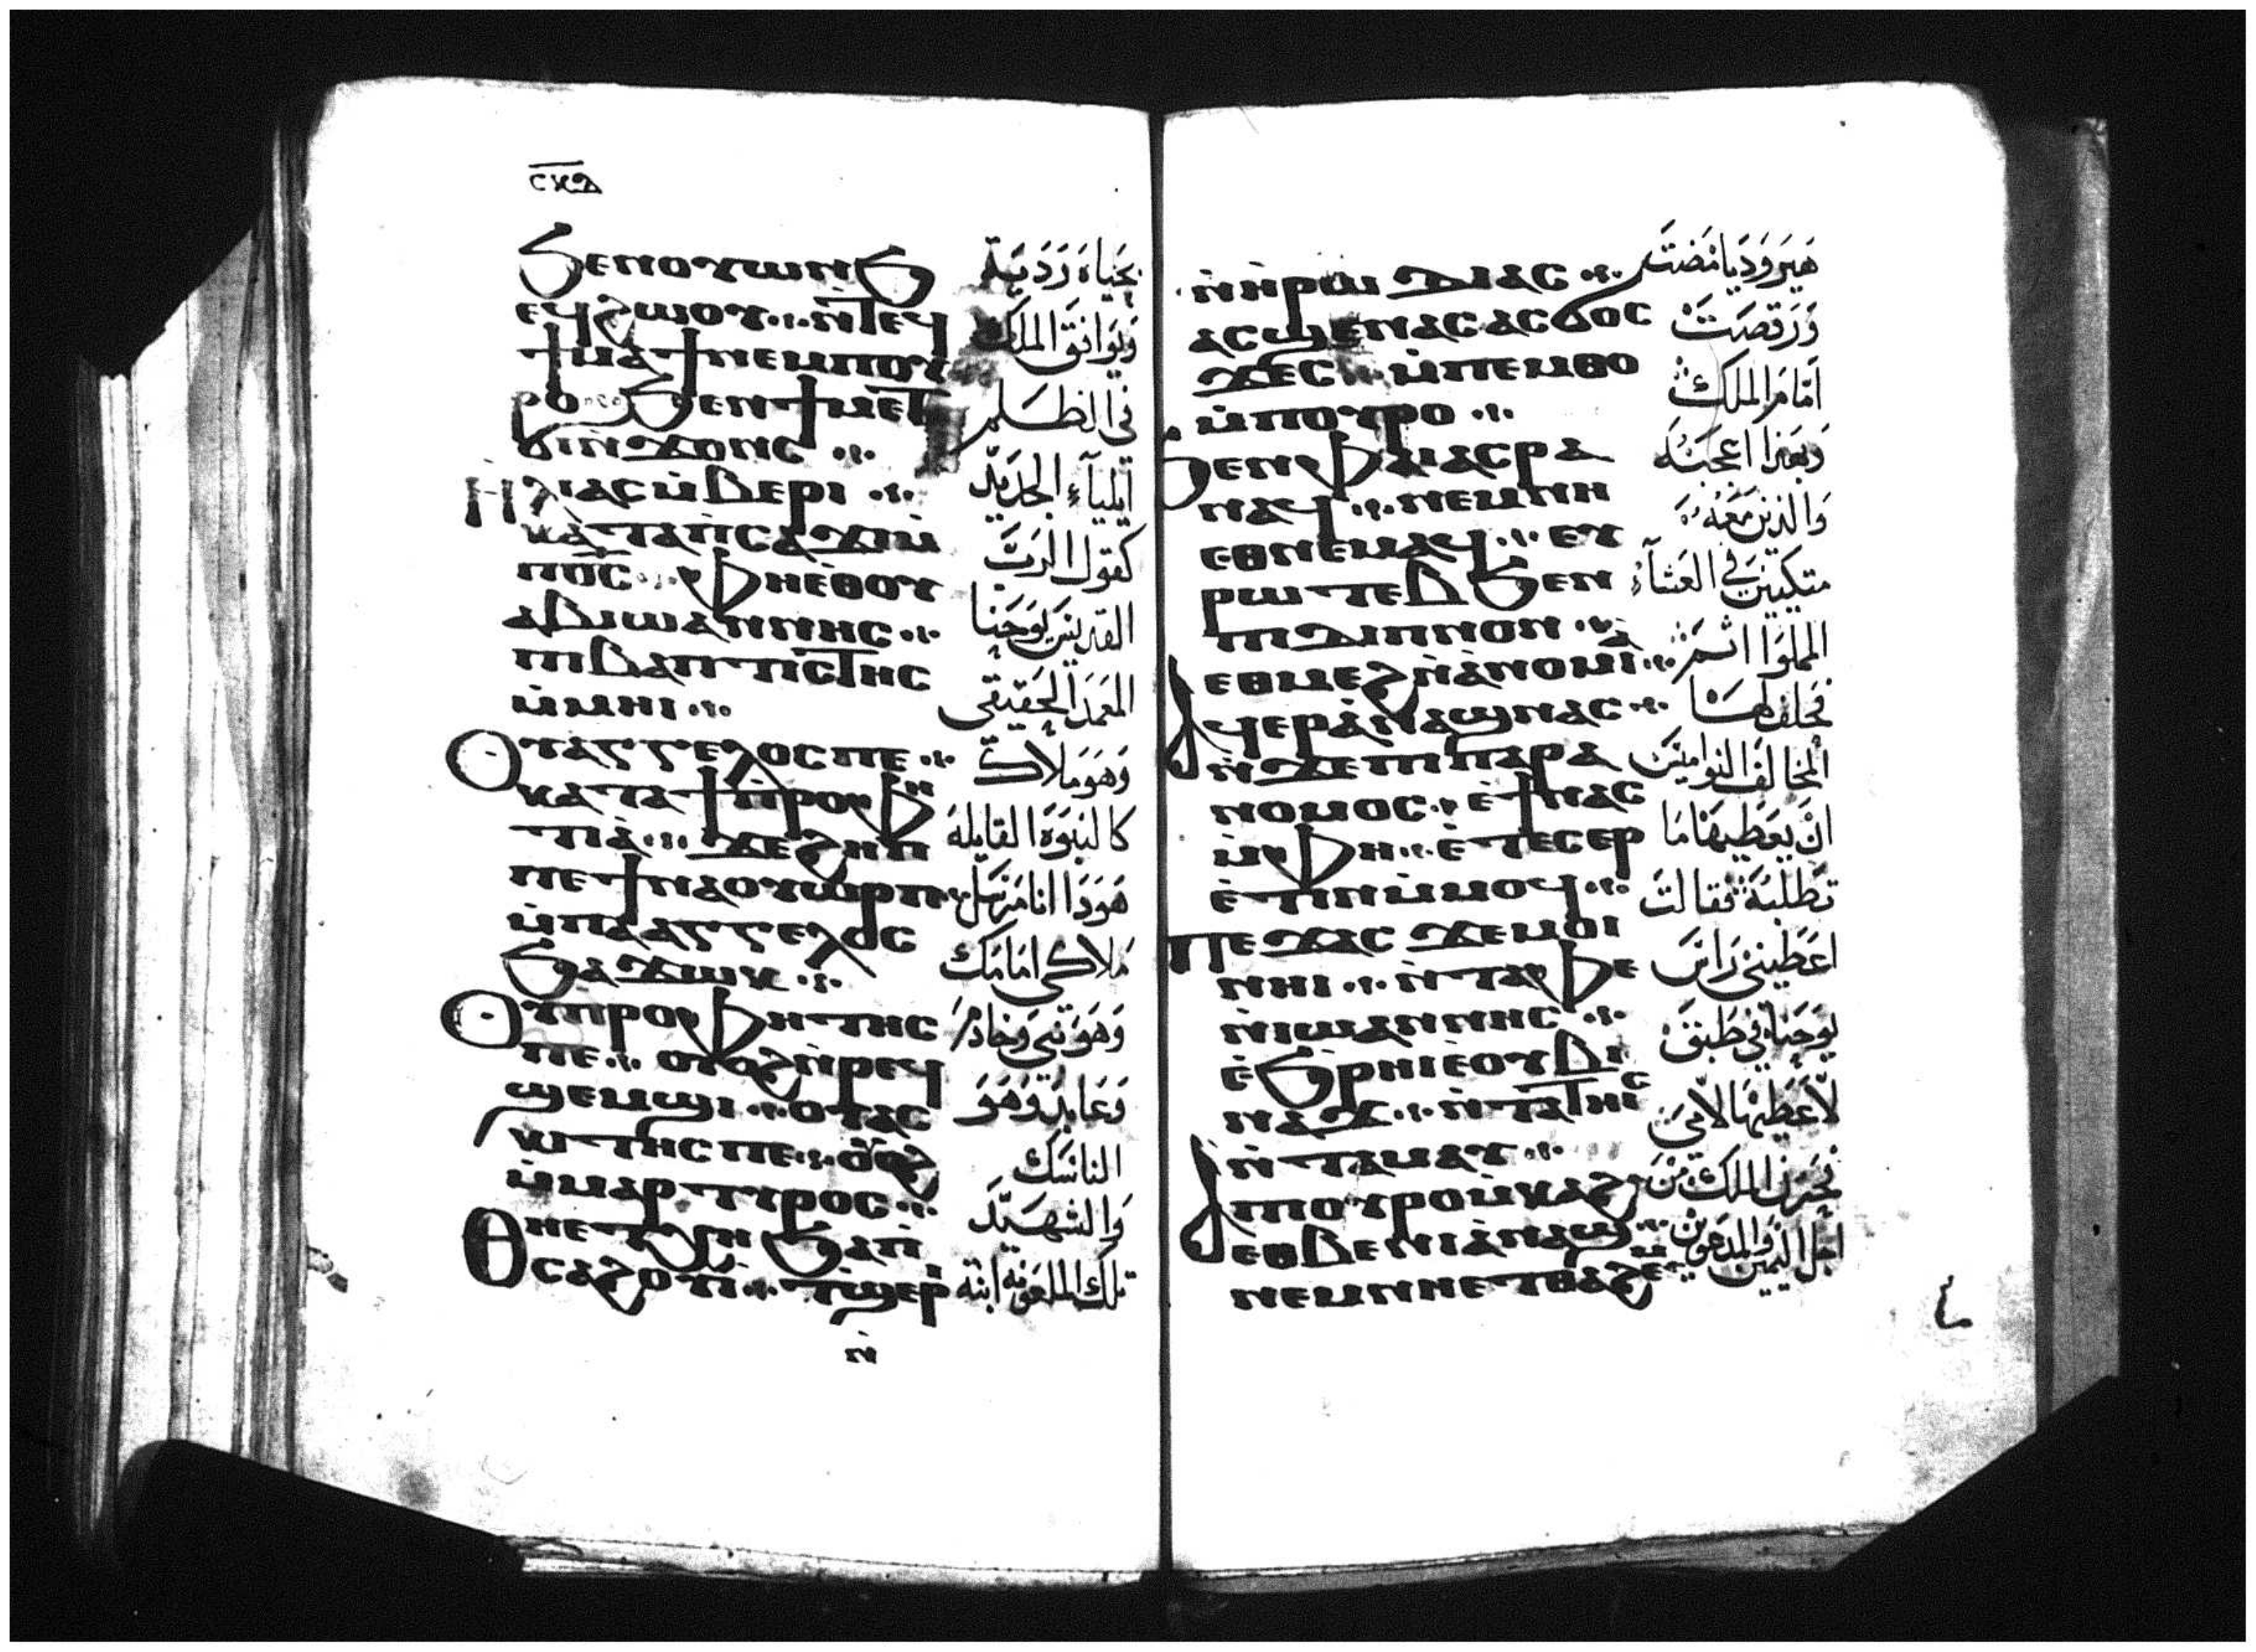 ⲥⲕⲇ
ϧⲉⲛⲟⲩⲱⲛϧ
ⲉϥϩⲱⲟⲩ ⲛ̀ⲧⲉϥ
ϯⲙⲁϯⲛⲉⲙⲡⲟⲩ
ⲣⲟ ϧⲉⲛϯⲙⲉⲧ
ϭⲓⲛ̀ϫⲟⲛⲥ
ⲏⲗⲓⲁⲥⲙ̀ⲃⲉⲣⲓ
ⲕⲁⲧⲁⲡ̀ⲥⲁϫⲓⲙ̀
ⲡⲟ̅ⲥ̅ ⲫⲏⲉⲑⲟⲩ
ⲁⲃⲓⲱⲁⲛⲛⲏⲥ
ⲡⲓⲃⲁⲡⲧⲓⲥⲧⲏⲥ
ⲙ̀ⲙⲏⲓ
ⲟⲩⲁⲅⲅⲉⲗⲟⲥⲡⲉ
ⲕⲁⲧⲁϯⲡ̀ⲣⲟⲫⲏ
ⲧⲓⲁ̀ ϫⲉϩⲏⲡ
ⲡⲉϯⲛⲁⲟⲩⲱⲣⲡ
ⲙ̀ⲡⲁⲁⲅⲅⲉⲗⲟⲥ
ϧⲁϫⲱⲕ
ⲟⲩⲡⲣⲟⲫⲏⲧⲏⲥ
ⲡⲉ ⲟⲩⲟϩⲛ̀ⲣⲉϥ
ϣⲉⲙϣⲓ ⲟⲩⲁⲥ
ⲕⲓⲧⲏⲥⲡⲉ ⲟⲩⲟϩ
ⲙ̀ⲙⲁⲣⲧⲩⲣⲟⲥ
ⲑⲏⲉⲧⲭⲏ ϧⲁⲡ̀
ⲥⲁϩⲟⲩⲓ̀ ⲧ̀ϣⲉⲣⲓ
ⲛ̀
بحياه رديه
ويوافق الملك
في الظلم
ايلياء الجديد
كقول الرب
القديس يوحنا
المعمد الحقيقي
وهو ملاك
كالنبوه القايله
هودا انا مرسل
ملاكي امامك
وهو نبي وخادم
وعابد وهو
الناسك
والشهيد
تلك الملعونه ابنة
ⲛ̀ⲏⲣⲱⲇⲓⲁⲥ
ⲁⲥϣⲉⲛⲁⲥⲁⲥϭⲟⲥ
ϫⲉⲥ ⲙ̀ⲡⲉⲙⲑⲟ
ⲙ̀ⲡⲟⲩⲣⲟ
ϧⲉⲛⲫⲁⲓⲁⲥⲣⲁ
ⲛⲁϥ ⲛⲉⲙⲛⲏ
ⲉⲑⲛⲉⲙⲁϥ ⲉⲩ
ⲣⲱⲧⲉⲃϧⲉⲛ
ⲡⲓⲇⲓⲡⲛⲟⲛ
ⲉⲑⲙⲉϩⲛ̀ⲁⲛⲟⲙⲓⲁ̀
ⲁϥⲉⲣⲁ̀ⲛⲁϣⲛⲁⲥ
ⲛ̀ϫⲉⲡⲓⲡⲁⲣⲁ
ⲛⲟⲙⲟⲥ ⲉ̀ϯⲛⲁⲥ
ⲙ̀ⲫⲏ ⲉ̀ⲧⲉⲥⲉⲣ
ⲉ̀ⲧⲓⲛⲙ̀ⲙⲟϥ
ⲡⲉϫⲁⲥ ϫⲉⲙⲟⲓ
ⲛⲏⲓ ⲛ̀ⲧⲁⲫⲉ
ⲛ̀ⲓⲱⲁⲛⲛⲏⲥ
ⲉ̀ϧⲣⲏⲓⲉ̀ⲟⲩⲃⲓ
ⲛⲁϫ ⲛ̀ⲧⲁⲧⲏⲓⲥ
ⲛ̀ⲧⲁⲙⲁⲩ
ⲁⲡⲟⲩⲣⲟⲙ̀ⲕⲁϩ
ⲉⲑⲃⲉⲛⲓⲁ̀ⲛⲁϣ
ⲛⲉⲙⲛⲏⲉⲧⲑⲁϩⲉⲙ
هيروديا مضت
ورقصت
امام الملك
وبهذا اعجبته
والذين معه
متكيين في العشاء
المملوا اثم
فحلف لها
المخالف النواميس
ان يعطيها ما
تطلبه فقالت
اعطيني راس
يوحنا في طبق
لاعطيها لامي
فحزن الملك من
اجل اليمين والمدعوين